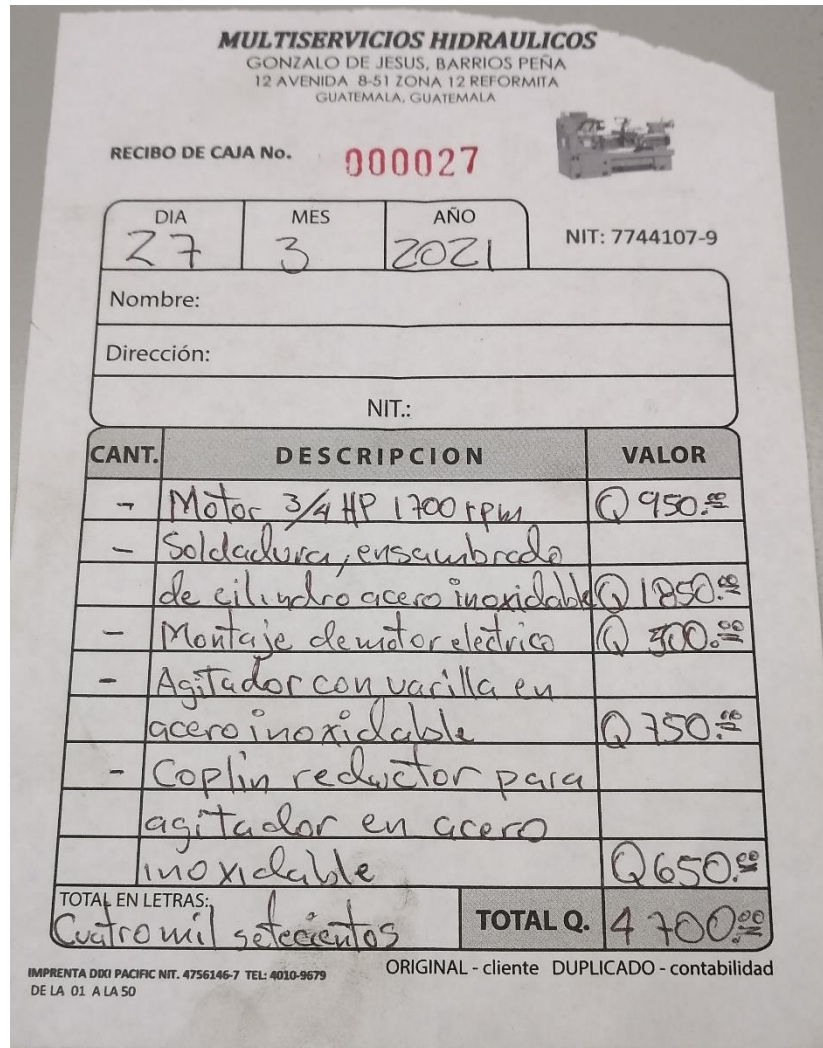 MULTISERVICIOS HIDRAULICOS
GONZALO DE JESUS, BARRIOS PEÑA
12 AVENIDA 8-51 ZONA 12 REFORMITA
GUATEMALA, GUATEMALA
RECIBO DE CAJA No. 000027
DIA MES AÑO
27 3 2021
NIT: 7744107-9
Nombre:
Dirección:
NIT.:
CANT. DESCRIPCION VALOR
- Motor 3/4 HP 1700 rpm Q 950.00
- Soldadura, ensambrado
de cilindro acero inoxidable Q 1850.00
- Montaje de motor electrico Q 500.00
- Agitador con varilla en
acero inoxidable Q 750.00
- Coplin reductor para
agitador en acero
inoxidable Q650.00
TOTAL EN LETRAS:
Cuatro mil setecientos TOTAL Q. 4 700.00
IMPRENTA DIXI PACIFIC NIT. 4756146-7 TEL: 4010-9679 ORIGINAL - cliente DUPLICADO - contabilidad
DE LA 01 A LA 50